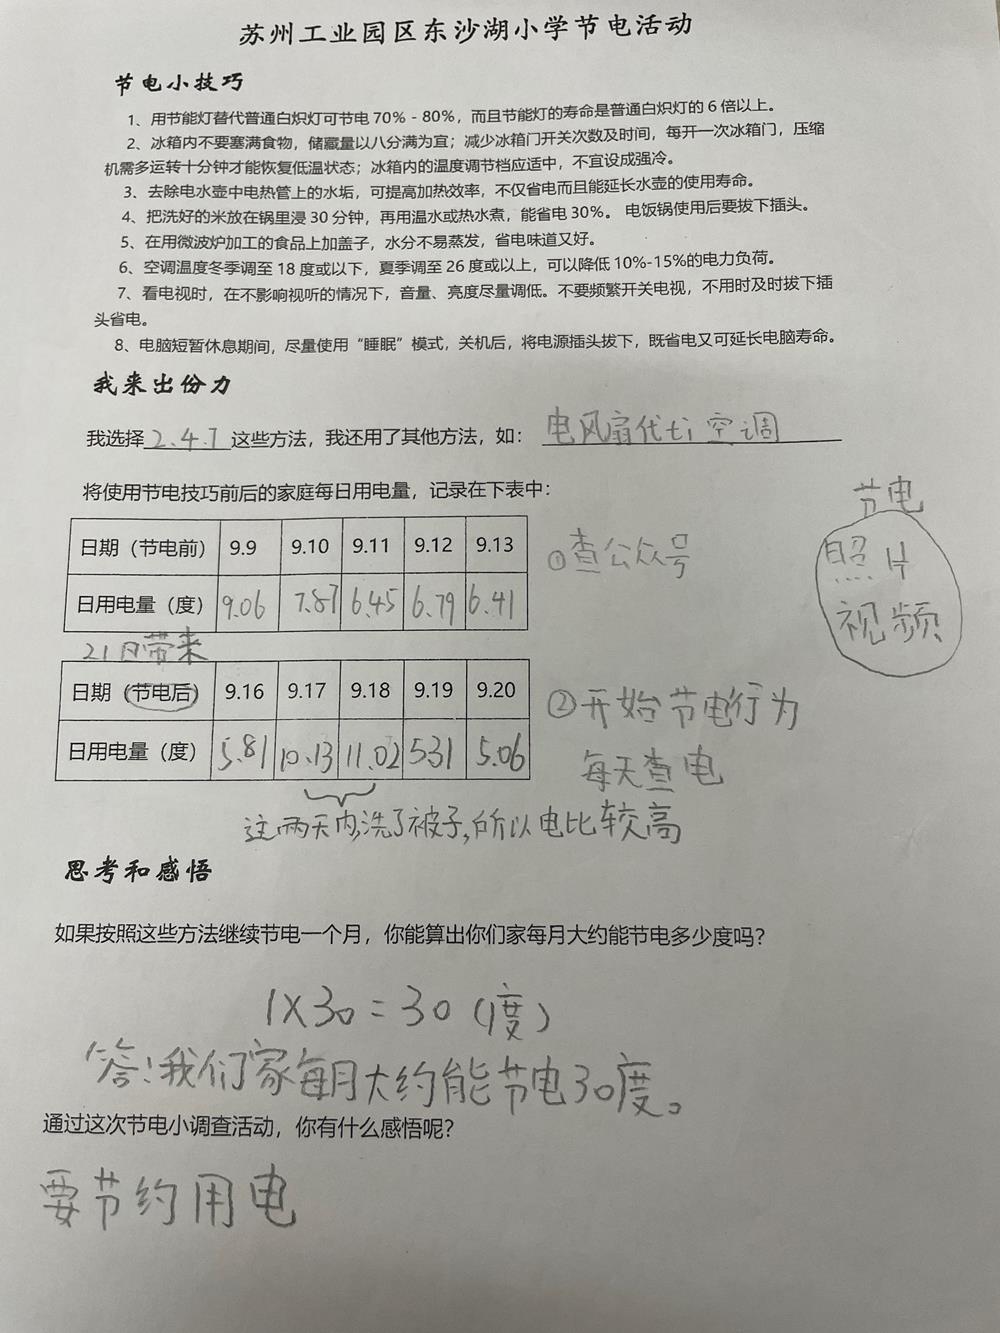 苏州工业园区东沙湖小学节电活动
节电小技巧
1、用节能灯替代普通白炽灯可节电70%-80%，而且节能灯的寿命是普通白炽灯的6倍以上。
2、冰箱内不要塞满食物，储藏量以八分满为宜；减少冰箱门开关次数及时间，每开一次冰箱门，压缩
机需多运转十分钟才能恢复低温状态；冰箱内的温度调节档应适中，不宜设成强冷。
3、去除电水壶中电热管上的水垢，可提高加热效率，不仅省电而且能延长水壶的使用寿命。
4、把洗好的米放在锅里浸30分钟，再用温水或热水煮，能省电30%。 电饭锅使用后要拔下插头。
5、在用微波炉加工的食品上加盖子，水分不易蒸发，省电味道又好。
6、空调温度冬季调至18度或以下，夏季调至26度或以上，可以降低10%-15%的电力负荷。
7、看电视时，在不影响视听的情况下，音量、亮度尽量调低。不要频繁开关电视，不用时及时拔下插
头省电。
8、电脑短暂休息期间，尽量使用“睡眠”模式，关机后，将电源插头拔下，既省电又可延长电脑寿命。
我来出份力
我选择2.4.7这些方法，我还用了其他方法，如：电风扇代ti空调
将使用节电技巧前后的家庭每日用电量，记录在下表中：
节电
照片
视频
日期（节电前） 9.9 9.10 9.11 9.12 9.13
①查公众号
日用电量（度） 9.06 7.87 6.45 6.79 6.41
21日带来
日期（节电后） 9.16 9.17 9.18 9.19 9.20
②开始节电行为
每天查电
日用电量（度） 5.81 10.13 11.02 5.31 5.06
这两天内,洗了被子,所以电比较高
思考和感悟
如果按照这些方法继续节电一个月，你能算出你们家每月大约能节电多少度吗？
1×30=30（度）
答:我们家每月大约能节电30度。
通过这次节电小调查活动，你有什么感悟呢？
要节约用电